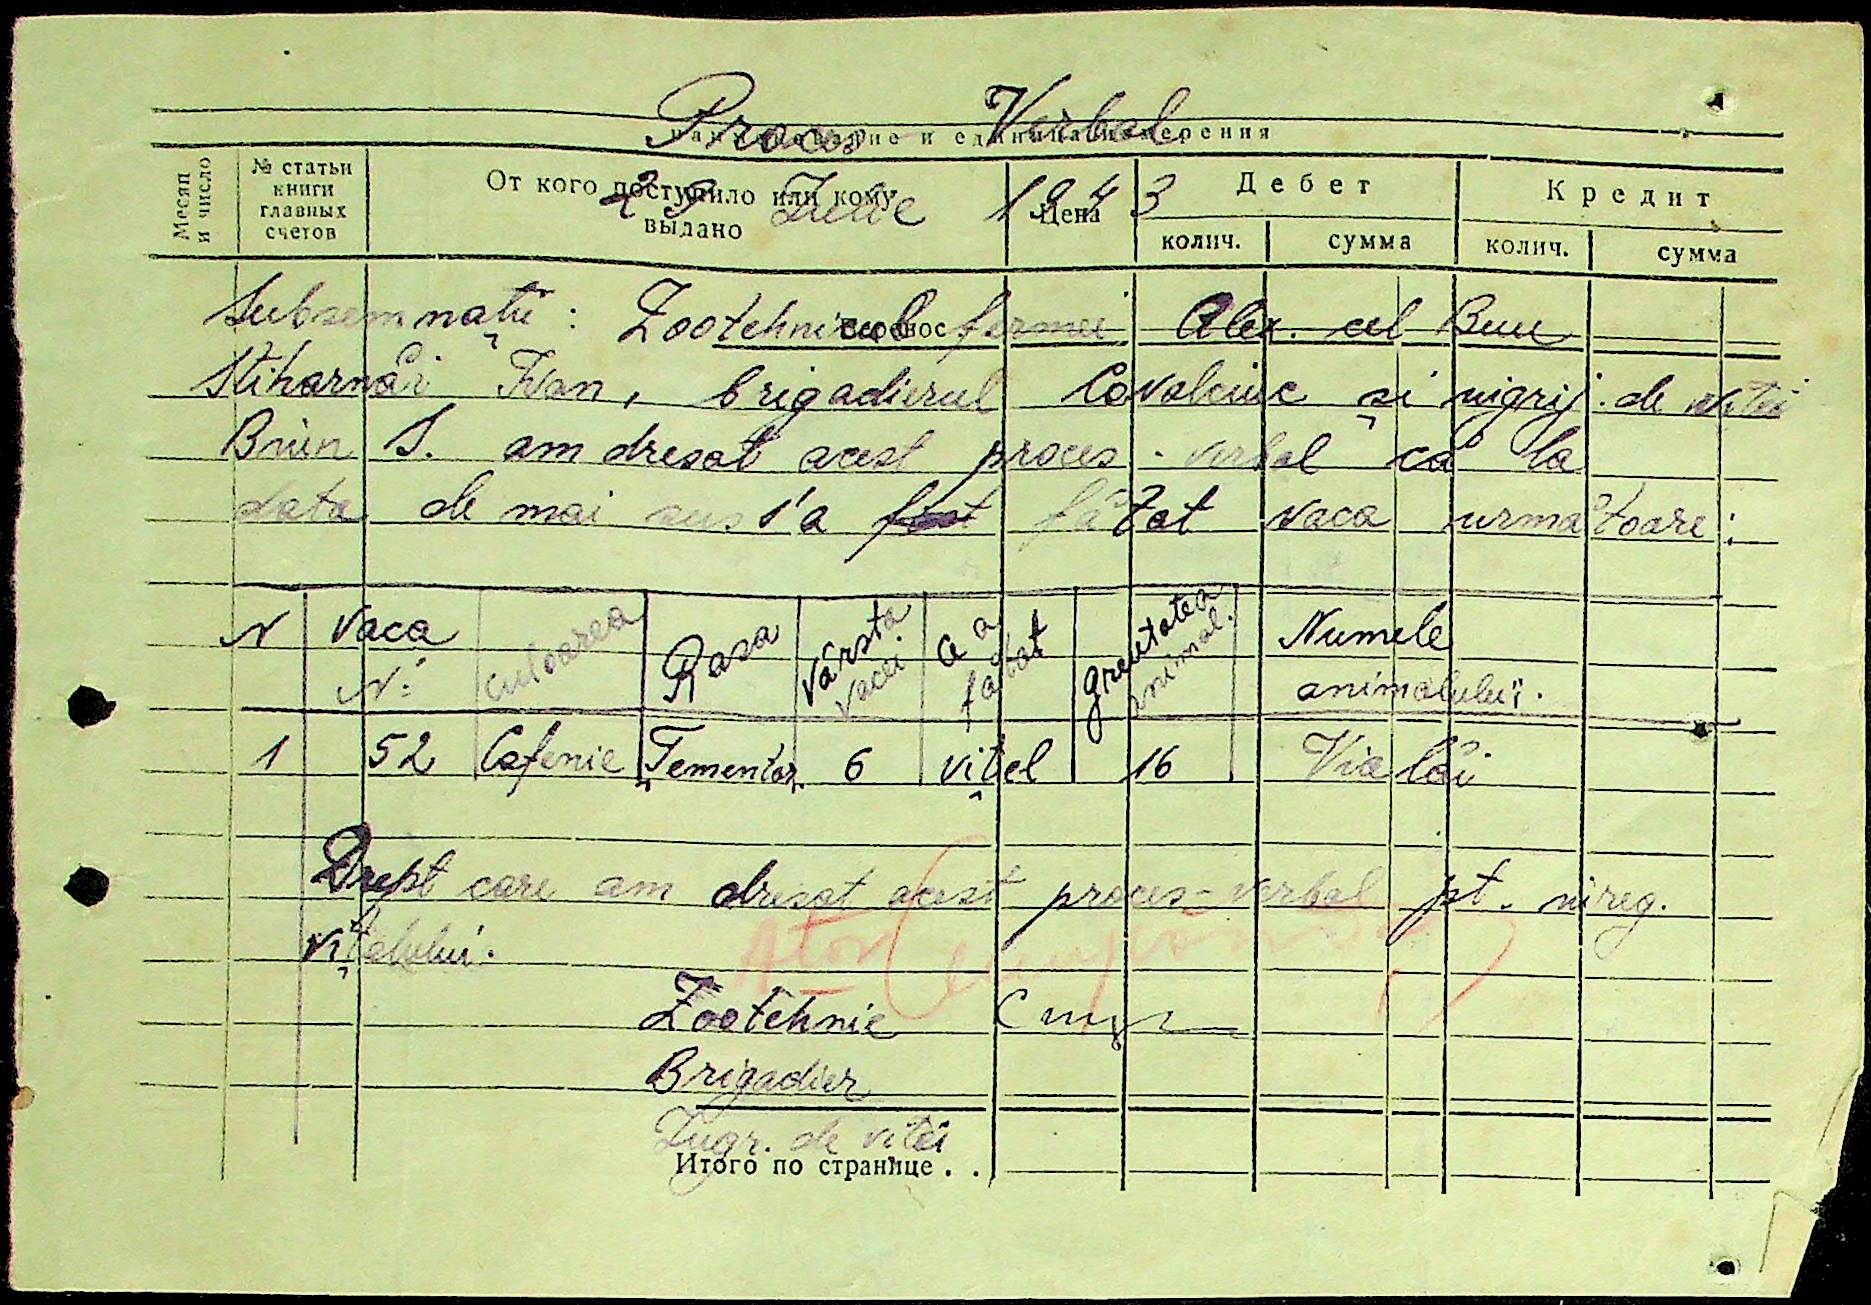 Proces Verbal
наименование и единица измерения
Месяц и число
№ статьи книги главных счетов
От кого поступило или кому выдано
Цена
Дебет
Кредит
колич.
сумма
колич.
сумма
29 Iulie 1943
Subsemnații: Zootehnicul fermei Alex. cel Bun
Перенос
Stiharnăi Ivan, brigadierul Covalciuc și îngrij. de vitei
S. am dresat acest proces-verbal că la
data de mai sus s'a fost fătat vaca următoare:
N Vaca Nº culoarea Rasa Vârsta vacei a a fătat greutatea animal. Numele animalului.
1 52 Cafenie 6 vițel 16
Drept care am dresat acest proces-verbal pt. înreg.
vițelului.
Zootehnic
Brigadier
Îngr. de vitei
Итого по странице . .